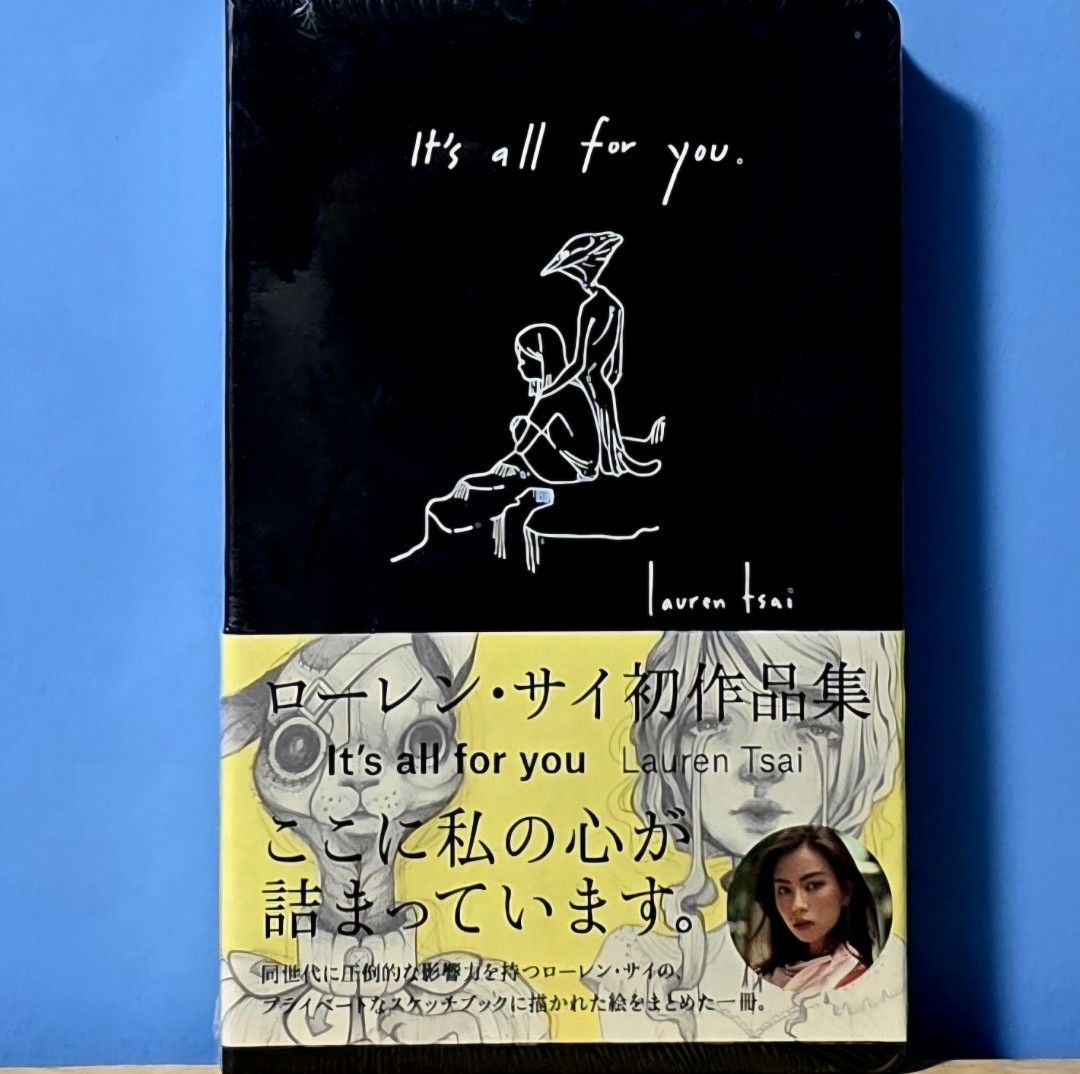 It's all for you.
lauren tsai
ローレン・サイ初作品集
It's all for you Lauren Tsai
ここに私の心が
詰まっています。
同世代に圧倒的な影響力を持つローレン・サイの、
プライベートなスケッチブックに描かれた絵をまとめた一冊。